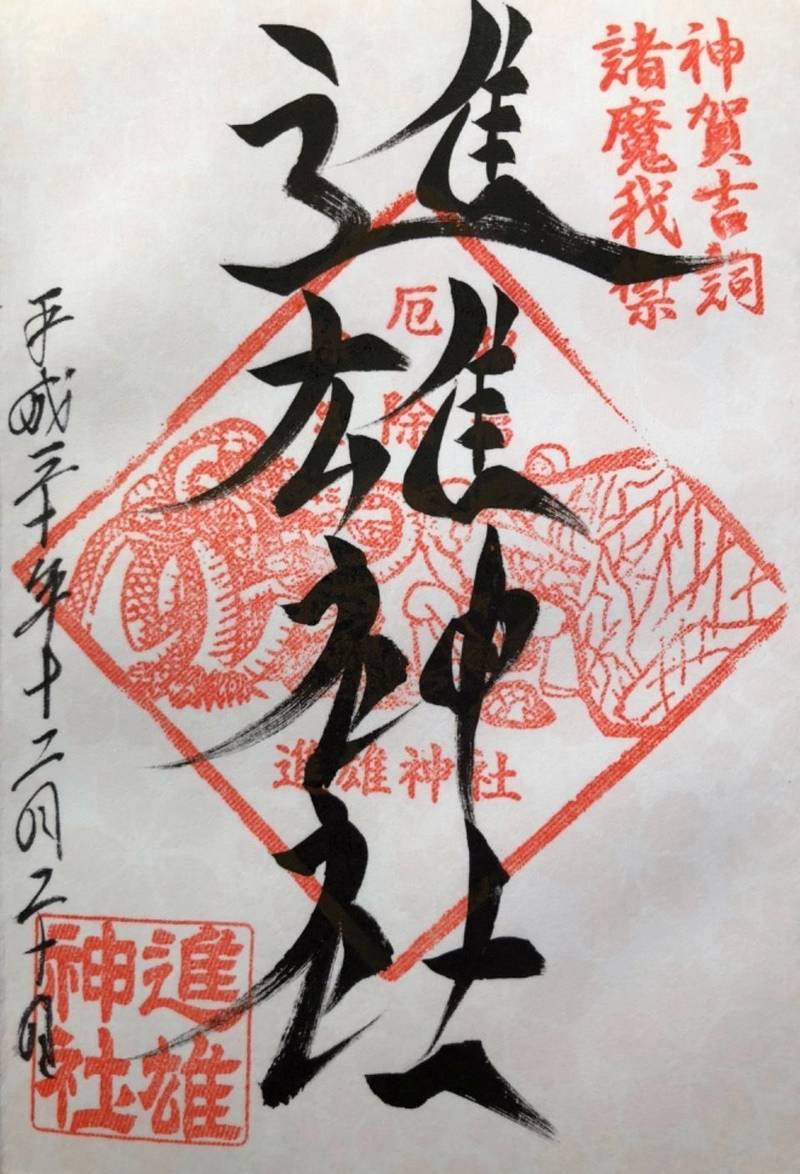 神賀吉詞
諸魔我禊
進雄神社
厄
除
進雄神社
平成三十年十二月二十日
進雄
神社